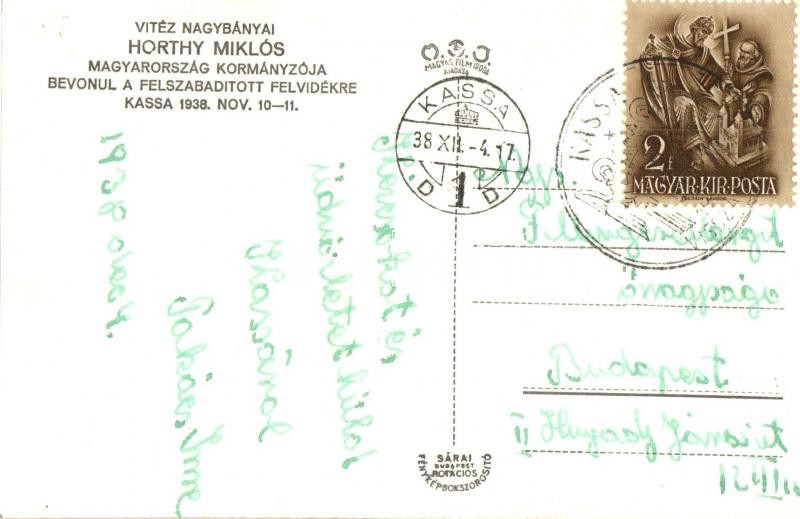 VITÉZ NAGYBÁNYAI
HORTHY MIKLÓS
MAGYARORSZÁG KORMÁNYZÓJA
BEVONUL A FELSZABADITOTT FELVIDÉKRE
KASSA 1938. NOV. 10—11.
M.F.I.
MAGYAR FILM IRODA
KIADÁSA
KASSA
38 XII. -4. 17
1
D D
KASSA
2 f
MAGYAR·KIR·POSTA
és
üdvözletet küld
Kassáról
Takács Imre
1938
Nagys.
őnagysága
Budapest
II Hunyady János út
SÁRAI
BUDAPEST
ROTÁCIÓS
FÉNYKÉPSOKSZOROSITÓ